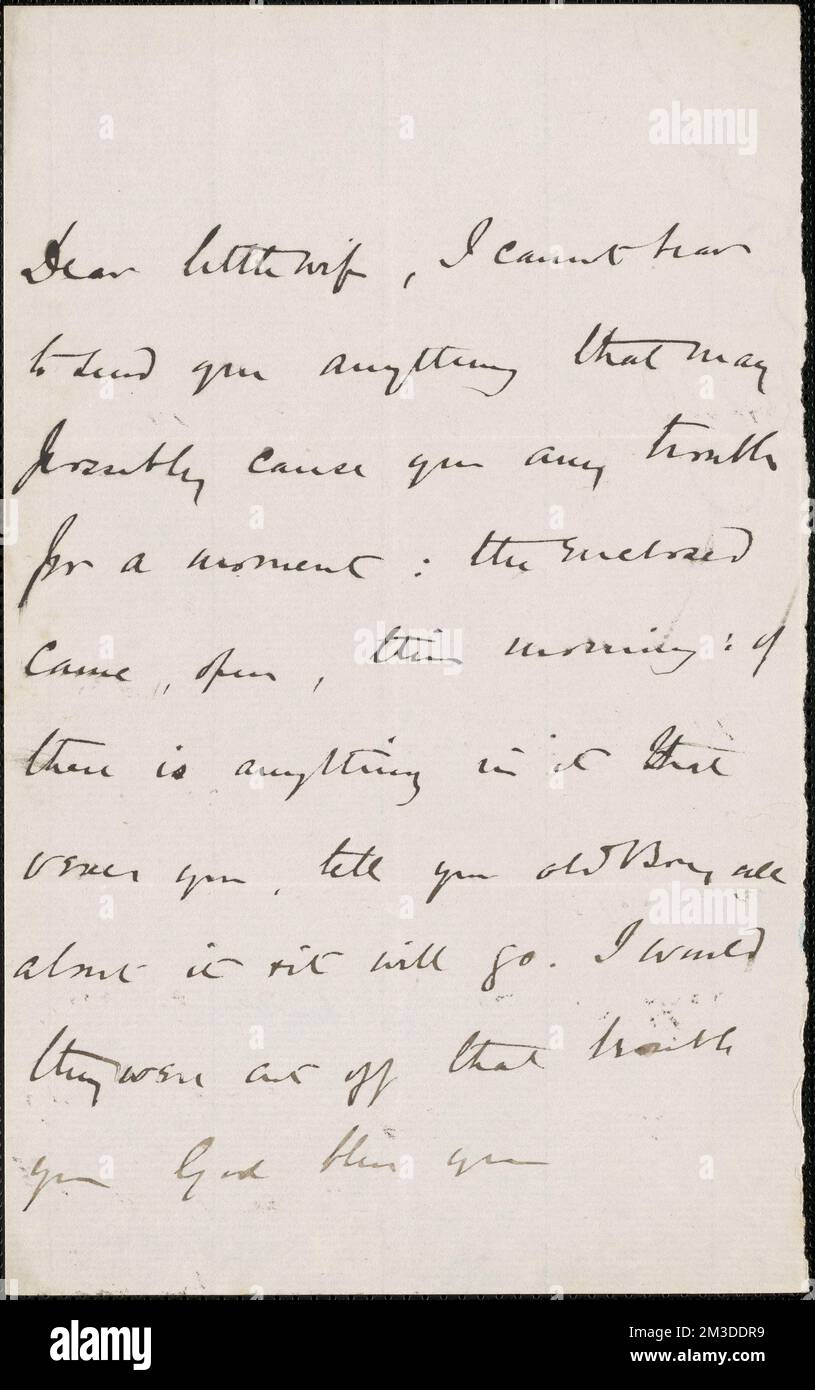 Dear little wife, I cannot bear
to send you anything that may
possibly cause you any trouble
for a moment : the enclosed
came, open, this morning : if
there is anything in it that
vexes you, tell you old Boy all
about it & it will go. I would
they were cut off that trouble
you God bless you
alamy
Image ID: 2M3DDR9
www.alamy.com